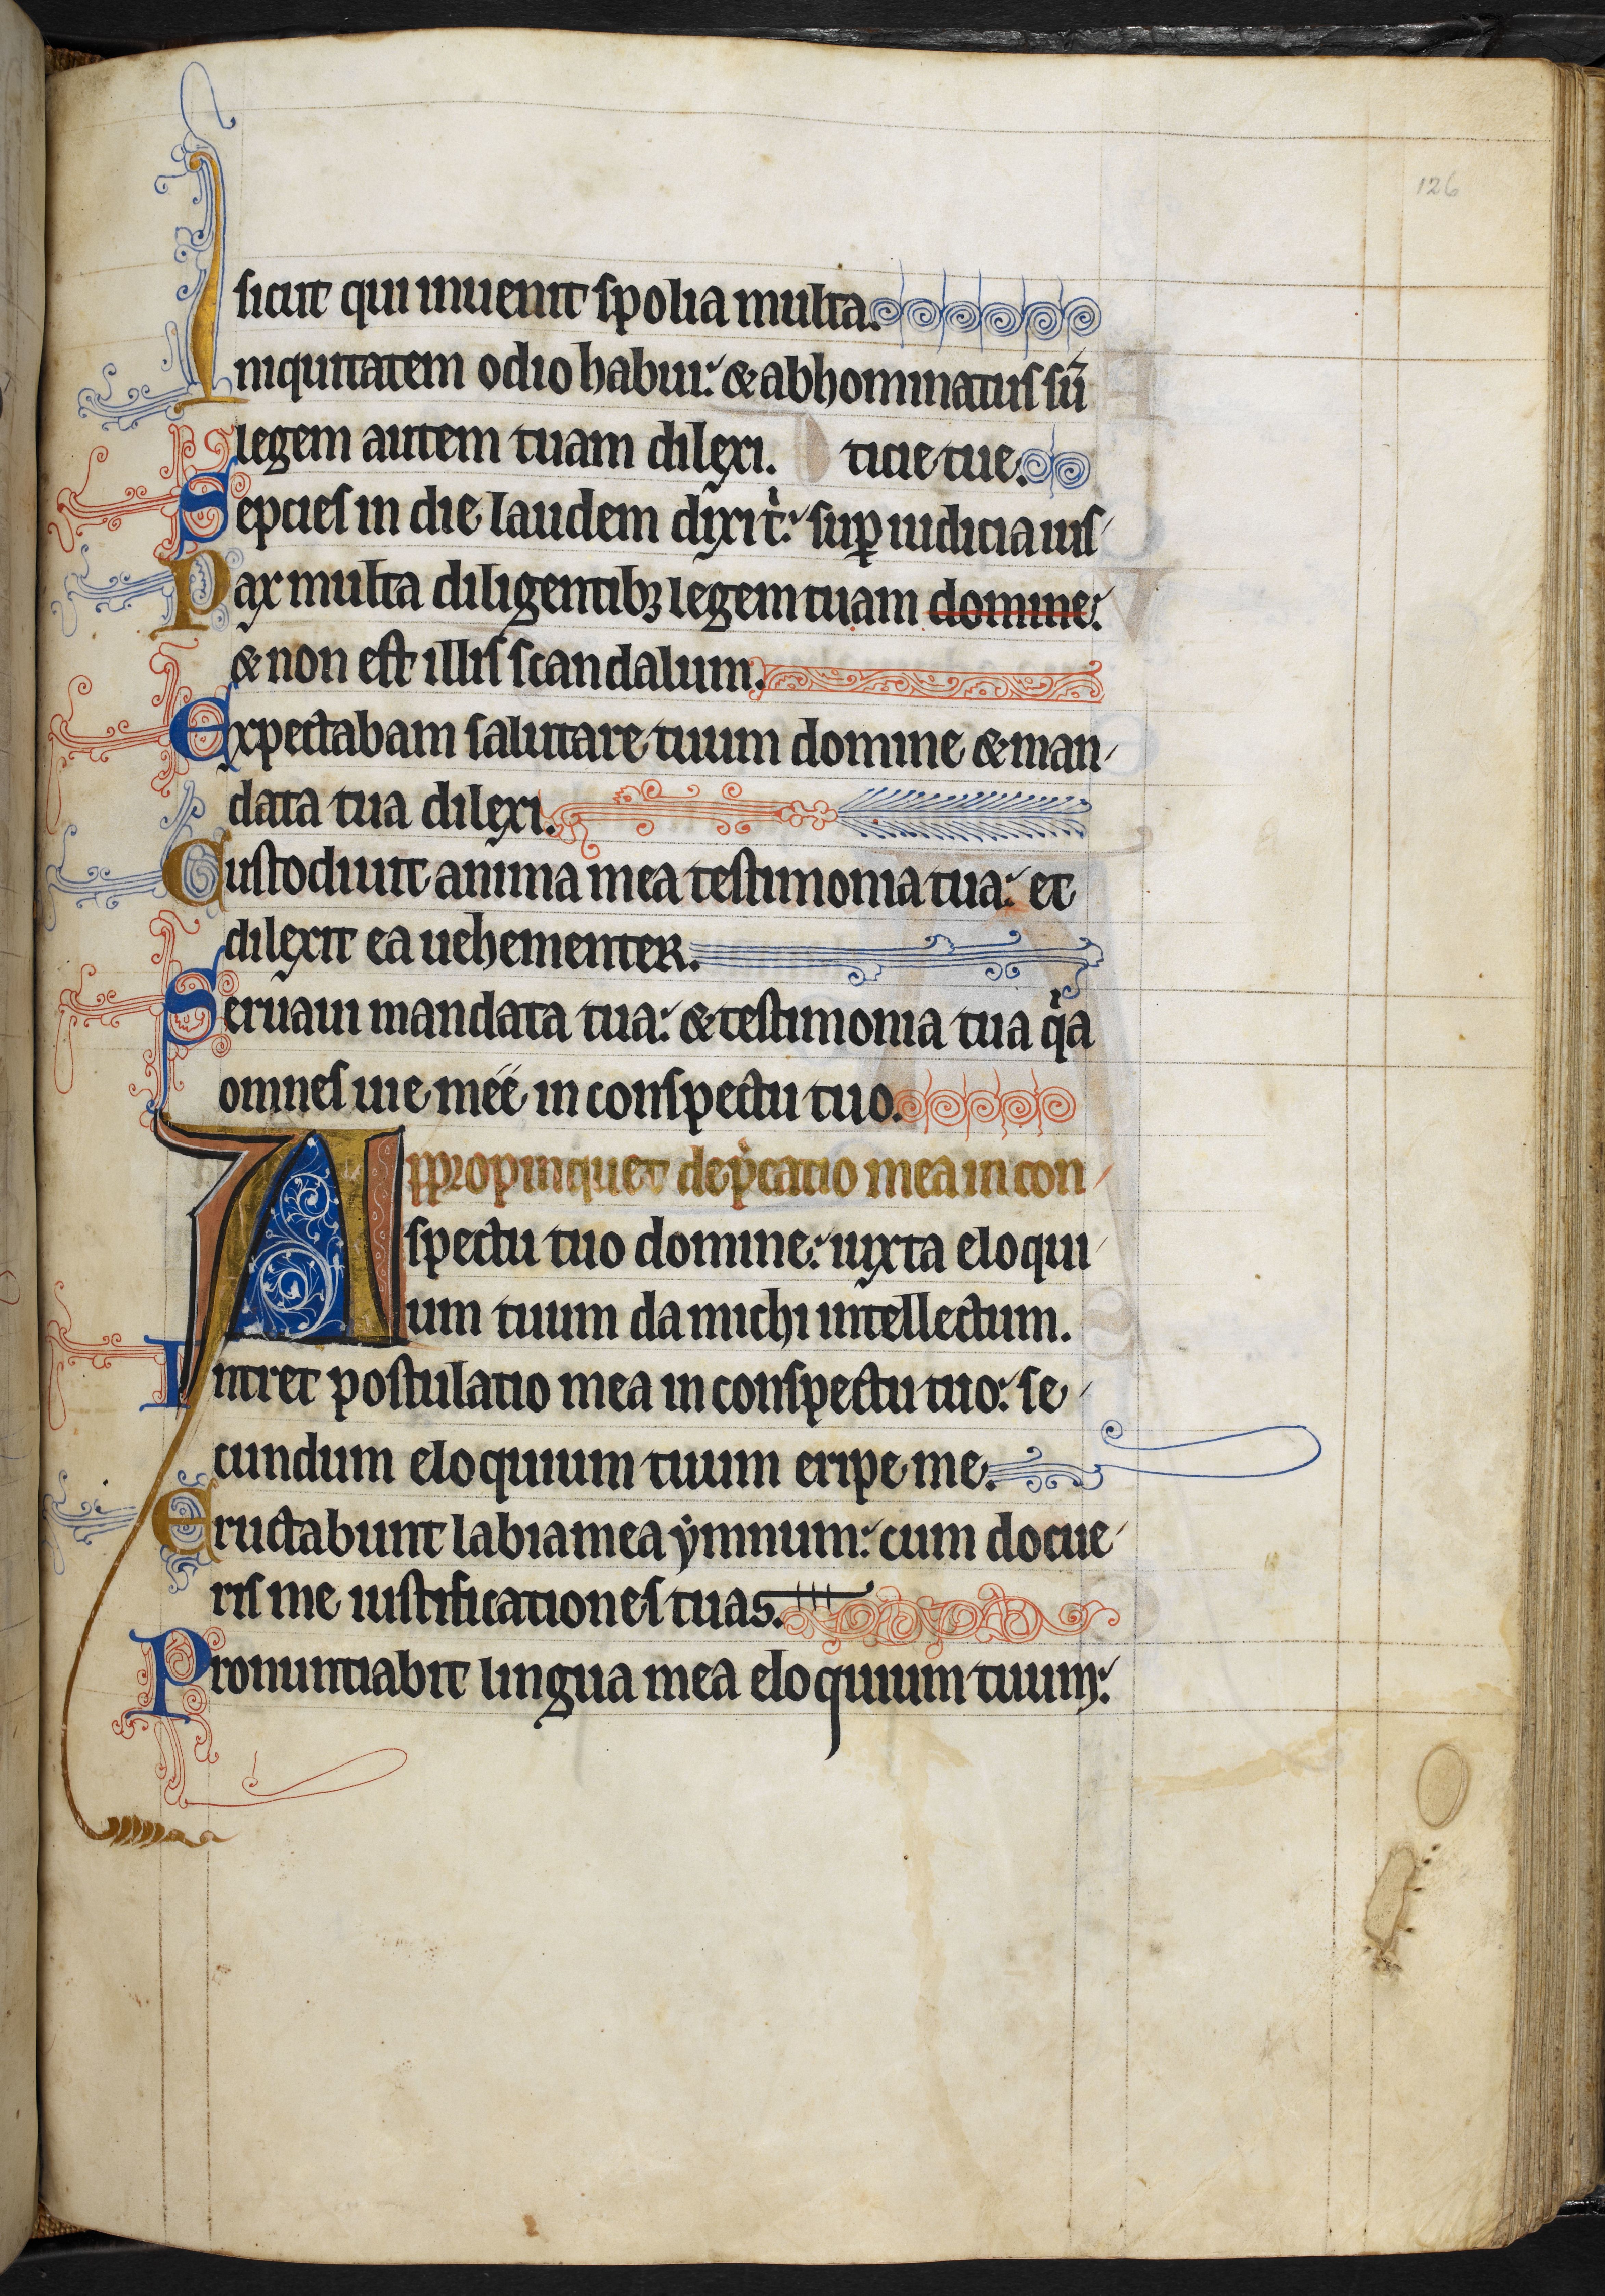 126
sicut qui inuenit spolia multa.
Iniquitatem odio habui: & abhominatus sū
legem autem tuam dilexi. ticie tue.
Sepcies in die laudem dixi t̍: suꝑ iudicia ius
Pax multa diligentibꝫ legem tuam domine:
& non est illis scandalum.
Expectabam salutare tuum domine & man
data tua dilexi.
Custodiuit anima mea testimonia tua: et
dilexit ea uehementer.
Seruaui mandata tua: & testimonia tua q̍a
omnes uie meé in conspectu tuo.
Appropinquet dep̍catio mea in con
spectu tuo domine: iuxta eloqui
um tuum da michi intellectum.
Intret postulatio mea in conspectu tuo: se
cundum eloquium tuum eripe me.
Eructabunt labia mea ẏmnum: cum docue
ris me iustificationes tuas.
Pronuntiabit lingua mea eloquium tuum: